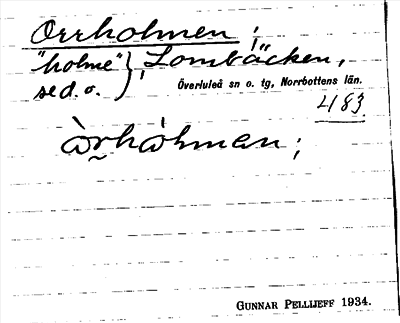 Orrholmen ;
"holme" } i Lombäcken,
se d. o.
Överluleå sn o. tg, Norrbottens län.
483
òr̰hólmen ;
GUNNAR PELLIJEFF 1934.